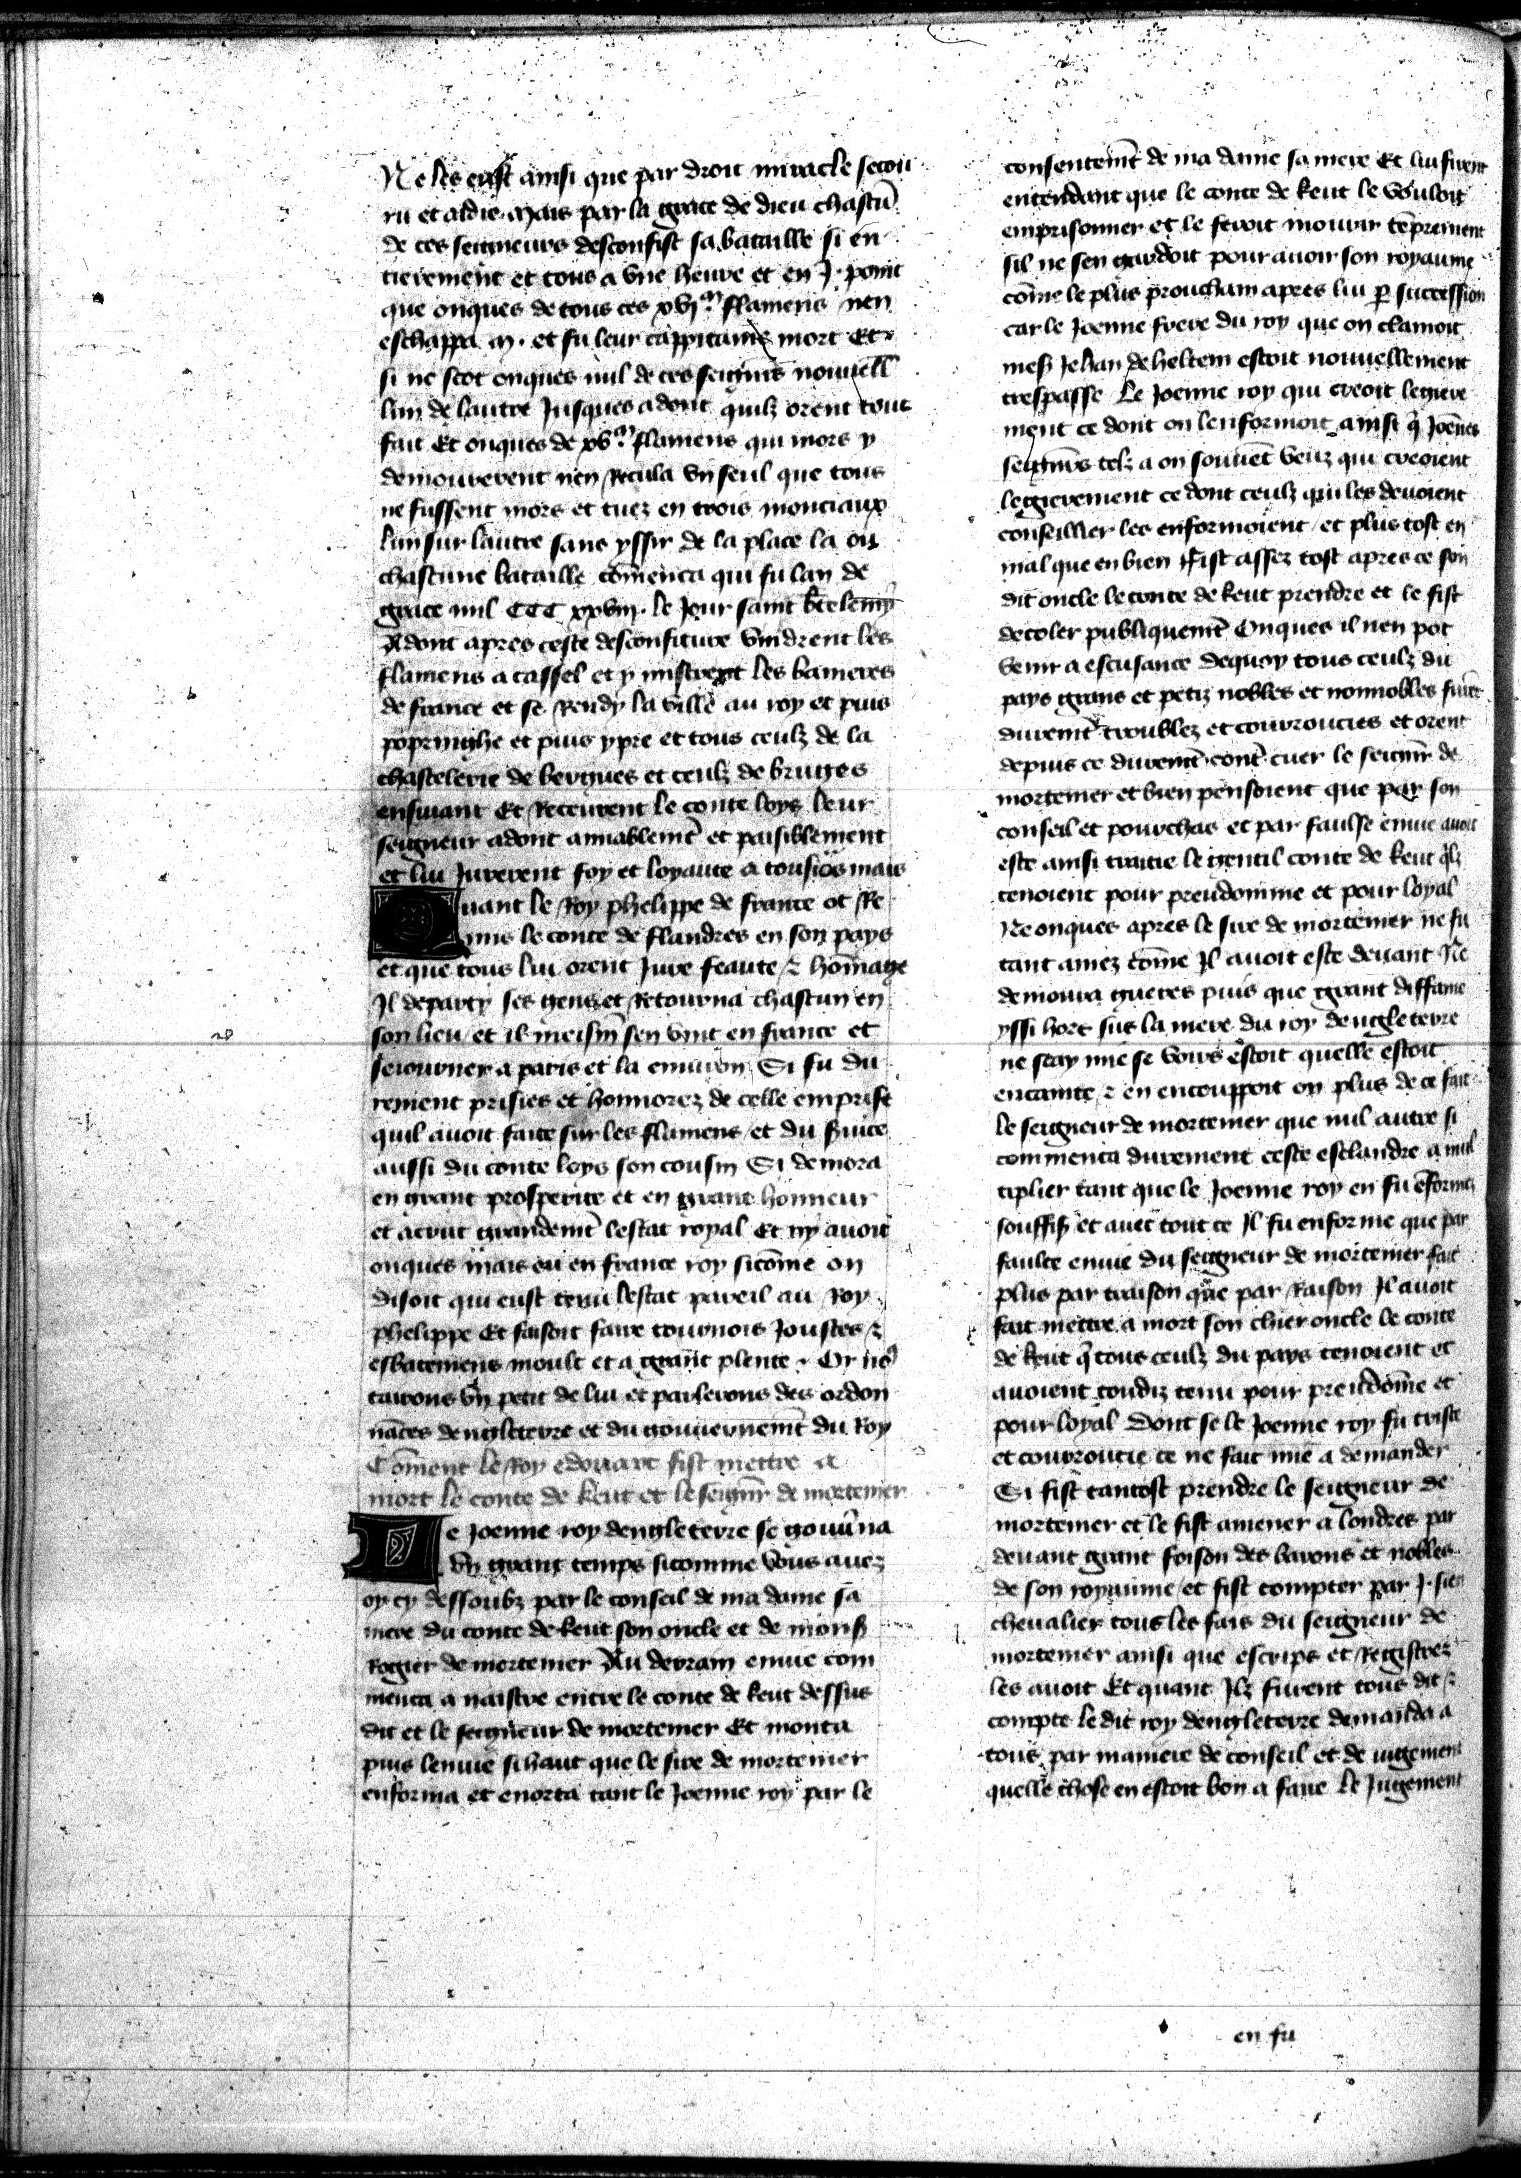 Ne les eust ainsi que par droit miracle secou
ru et aidie. Mais par la grace de dieu chascũ
de ces seigneurs desconfist sa bataille si en
tierement et tous a vne heure et en .J. point
que onques de tous ces xvjᵐ flamens nen
eschappa .m. et fu leur cappitaine mort Et
si ne scot onques nul de ces seignrs nouuell
lun de lautre Jusques adont quilz orent tout
fait Et onques de xvᵐ flamens qui mors y
demourerent nen Recula vn seul que tous
ne fussent mors et tuez en trois monciaux
lun sur lautre sans yssir de la place la ou
chascune bataille cõmenca qui fu lan de
grace mil CCC xxviij. le Jour saint btelemy
Adont apres ceste desconfiture vindrent les
flamens a cassel et y mistrent les banieres
de france et se Rendy la ville au roy et puis
popringhe et puis ypre et tous ceulz de la
chastelerie de bergues et ceulz de bruges
ensuiant Et Receurent le conte loys leur
seigneur adont amiablemt et paisiblement
et lui Jurerent foy et loyaute a tousiousmais
Quant le Roy phelippe de france ot Re
mis le conte de flandres en son pays
et que tous lui orent Jure feaute ⁊ hõmage
Il departy ses gens et Retourna chascun en
son lieu et il meism sen vint en france et
seiourner a paris et la enuiron Si fu du
rement prisies et honnorez de celle emprise
quil auoit faite sur les flamens et du suice
aussi du conte loys son cousin Si demora
en grant prosperite et en grant honneur
et acrut grandemt lestat royal Et ny auoit
onques mais eu en france roy sicõme on
disoit qui eust tenu lestat pareil au Roy
phelippe Et faisoit faire tournois Joustes ⁊
esbatemens moult et a grant plente. Or no⁹
tairons vn petit de lui et parlerons des ordon
nãces dengleterre et du gouuernemt du Roy
Cõment le Roy edouart fist mettre a
mort le conte de kent et le seignr de mortemer
Le Joenne roy dengleterre se gouũna
vn grant temps sicomme vous auez
oy cy dessoubz par le conseil de ma dame sa
mere du conte de kent son oncle et de mons
Rogier de mortemer Au derrain enuie com
menca a naistre entre le conte de kent dessus
dit et le seigneur de mortemer Et monta
puis lenuie si haut que le sire de mortemer
enforma et enorta tant le Joenne roy par le
consentemt de ma dame sa mere Et lui firent
entendant que le conte de kent le vouloit
emprisonner et le feroit mourir tẽprement
sil ne sen gardoit pour auoir son royaume
cõme le plus prouchain apres lui p succession
car le Joenne frere du roy que on clamoit
mess Jehan de heltem estoit nouuellement
trespasse Le Joenne roy qui creoit legiere
ment ce dont on lenformoit ainsi q̃ Joẽnes
seignrs telz a on souuẽt veuz qui creoient
legierement ce dont ceulz qui les deuoient
conseillier les enformoient et plus tost en
mal que en bien Fist assez tost apres ce son
dit oncle le conte de kent prendre et le fist
decoler publiquemt Onques il nen pot
venir a escusance Dequoy tous ceulz du
pays grans et petiz nobles et nonnobles furẽt
duremt troublez et courroucies et orent
depuis ce duremt contr cuer le seignr de
mortemer et bien pensoient que par son
conseil et pourchas et par faulse enuie auoit
este ainsi traitie le gentil conte de kent qlz
tenoient pour preudomme et pour loyal
Ne onques apres le sire de mortemer ne fu
tant amez cõme Il auoit este deuant Ne
demoura gueres puis que grant diffame
yssi hors sus la mere du roy dengleterre
ne scay mie se voirs estoit quelle estoit
encainte ⁊ en encouppoit on plus de ce fait
le seigneur de mortemer que nul autre si
commenca durement ceste esclandre a mul
tiplier tant que le Joenne roy en fu ẽformez
souffiss et auec tout ce Il fu enforme que par
faulce enuie du seigneur de mortemer fait
plus par traison que par Raison Il auoit
fait mettre a mort son chier oncle le conte
de kent q̃ tous ceulz du pays tenoient et
auoient toudiz tenu pour preudõme et
pour loyal Dont se le Joenne roy fu triste
et courroucie ce ne fait mie a demander
Si fist tantost prendre le seigneur de
mortemer et le fist amener a londres par
deuant grant foison des barons et nobles
de son royaume et fist compter par .J. sien
cheualier tous les fais du seigneur de
mortemer ainsi que escrips et Registrez
les auoit Et quant Ilz furent tous dit ⁊
compte le dit roy dengleterre demanda a
tous par maniere de conseil et de iugement
quelle chose en estoit bon a faire Le Jugement
en fu